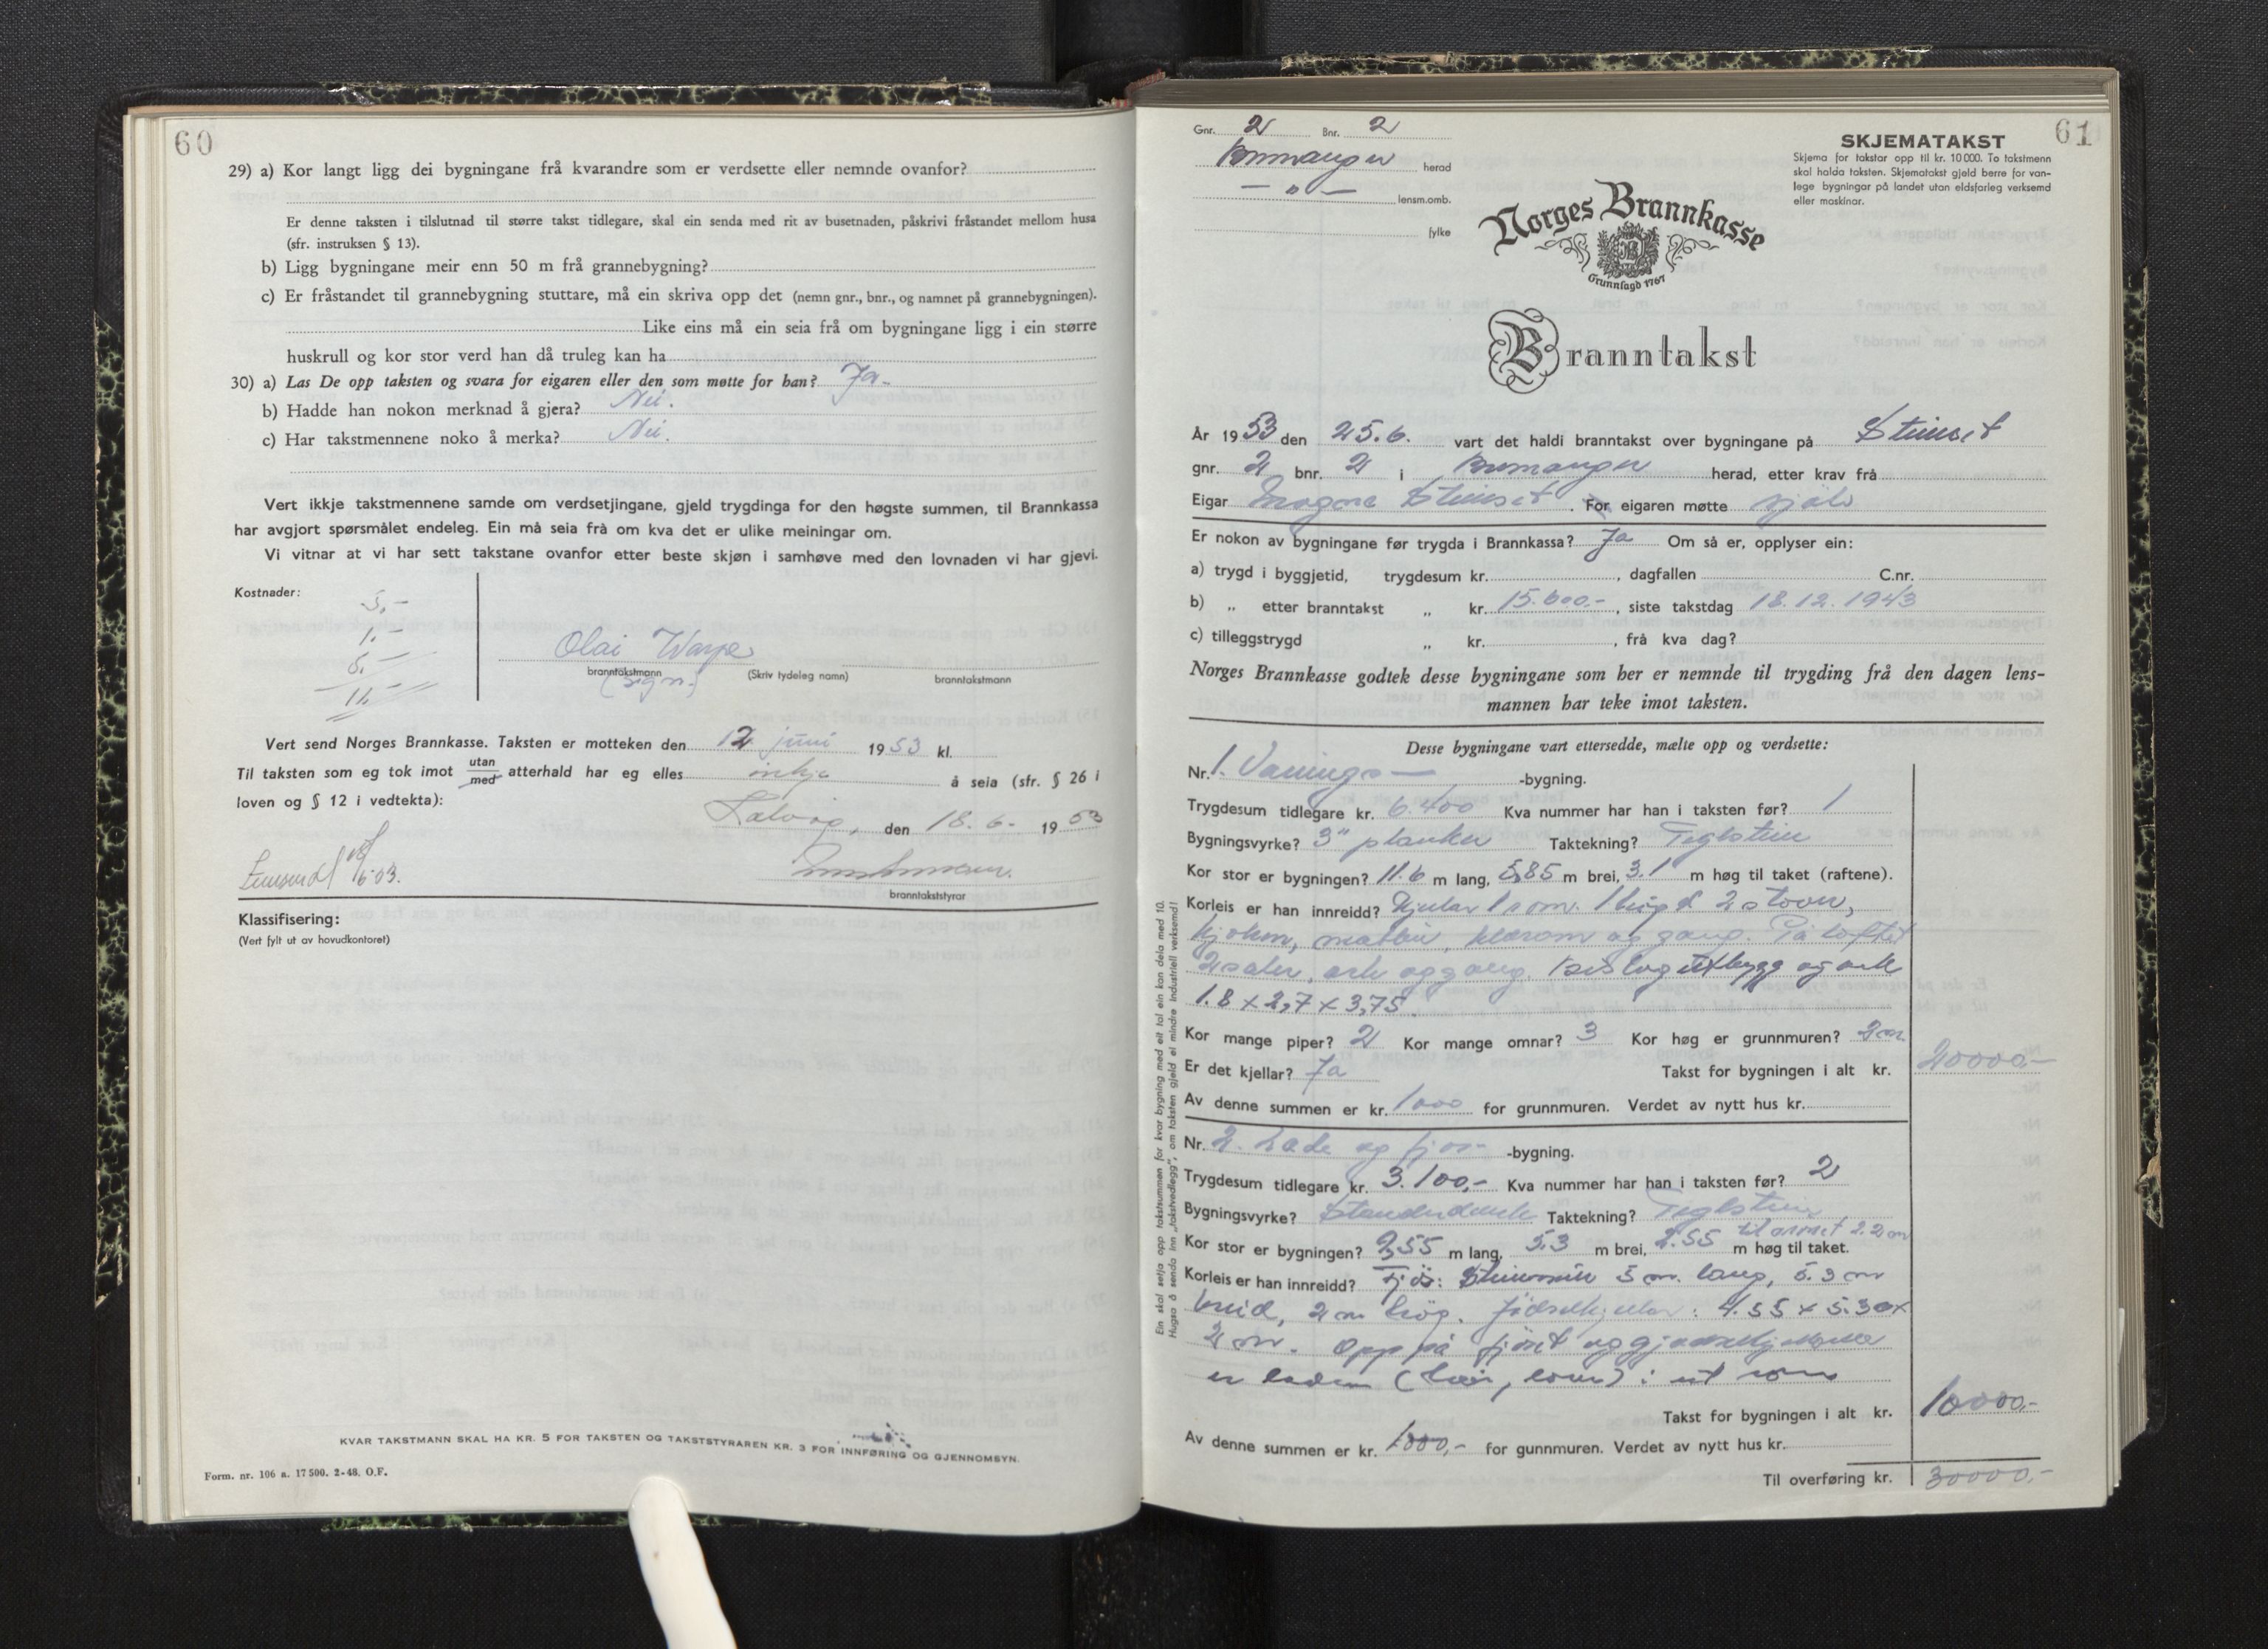 60
29) a) Kor langt ligg dei bygningane frå kvarandre som er verdsette eller nemnde ovanfor?
Er denne taksten i tilslutnad til større takst tidlegare, skal ein senda med rit av busetnaden, påskrivi fråstandet mellom husa
(sfr. instruksen § 13).
b) Ligg bygningane meir enn 50 m frå grannebygning?
c) Er fråstandet til grannebygning stuttare, må ein skriva opp det (nemn gnr., bnr., og namnet på grannebygningen).
Like eins må ein seia frå om bygningane ligg i ein større
huskrull og kor stor verd han då truleg kan ha
30) a) Las De opp taksten og svara for eigaren eller den som møtte for han? Ja.
b) Hadde han nokon merknad å gjera? Nei.
c) Har takstmennene noko å merka? Nei.
Vert ikkje takstmennene samde om verdsetjingane, gjeld trygdinga for den høgste summen, til Brannkassa
har avgjort spørsmålet endeleg. Ein må seia frå om kva det er ulike meiningar om.
Vi vitnar at vi har sett takstane ovanfor etter beste skjøn i samhøve med den lovnaden vi har gjevi.
Kostnader:
5,-
1.-
5.-
11.-
Olai Warpe
branntakstmann (Skriv tydeleg namn) branntakstmann
(sign.)
Vert send Norges Brannkasse. Taksten er motteken den 12 juni 1953 kl.
Til taksten som eg tok imot utan/med atterhald har eg elles inkje å seia (sfr. § 26 i
loven og § 12 i vedtekta):
Kalvåg, den 18.6. 1953
branntakststyrar
Klassifisering:
(Vert fylt ut av hovudkontoret)
KVAR TAKSTMANN SKAL HA KR. 5 FOR TAKSTEN OG TAKSTSTYRAREN KR. 3 FOR INNFØRING OG GJENNOMSYN.
Form. nr. 106 a. 17 500. 2-48. O.F.
61
Gnr. 2 Bnr. 2
Bremanger herad
— " — lensm.omb.
fylke
SKJEMATAKST
Skjema for takstar opp til kr. 10 000. To takstmenn
skal halda taksten. Skjematakst gjeld berre for van-
lege bygningar på landet utan eldsfarleg verksemd
eller maskinar.
Norges Brannkasse
Grunnlagd 1767
Branntakst
År 1953 den 25.6. vart det haldi branntakst over bygningane på Steinset
gnr. 2 bnr. 2 i Bremanger herad, etter krav frå
Eigar Magne Steinset. For eigaren møtte sjølv
Er nokon av bygningane før trygda i Brannkassa? Ja Om så er, opplyser ein:
a) trygd i byggjetid, trygdesum kr. , dagfallen C.nr.
b) „ etter branntakst „ kr. 15.600,- , siste takstdag 18.12.1943
c) tilleggstrygd „ kr. , frå kva dag?
Norges Brannkasse godtek desse bygningane som her er nemnde til trygding frå den dagen lens-
mannen har teke imot taksten.
Desse bygningane vart ettersedde, mælte opp og verdsette:
Nr. 1. Vånings- -bygning.
Trygdesum tidlegare kr. 6.400 Kva nummer har han i taksten før? 1
Bygningsvyrke? 3" planker Taktekning? Teglstein
Kor stor er bygningen? 11.6 m lang, 5,85 m brei, 3.1 m høg til taket (raftene).
Korleis er han innreidd? Kjellar 1 rom. 1 högd 2 stover,
kjøken, matbu, klerom og gang. På loftet
2 saler, ark og gang. utbygg og ark
1.8 x 2,7 x 3,75.
Kor mange piper? 2 Kor mange omnar? 3 Kor høg er grunnmuren? 2 m
Er det kjellar? Ja Takst for bygningen i alt kr. 20000,-
Av denne summen er kr. 1000 for grunnmuren. Verdet av nytt hus kr.
Nr. 2. Løde og fjøs- -bygning.
Trygdesum tidlegare kr. 3.100,- Kva nummer har han i taksten før? 2
Bygningsvyrke? Taktekning? Teglstein
Kor stor er bygningen? 9,55 m lang, 5.3 m brei, 2.55 m høg til taket.
Korleis er han innreidd? Fjös: Steinmur 5 m. lang, 5.3 m
breid, 2 m høg. 4.55 x 5.30 x
2 m. Opp på fjöset og gjødselkjellaren
er løden (høy, korn) i eit rom
Takst for bygningen i alt kr. 10000,-
Av denne summen er kr. 1000,- for gunnmuren. Verdet av nytt hus kr.
Til overføring kr. 30000,-
Ein skal setja opp takstsummen for kvar bygning med eit tal ein kan dela med 10.
Hugsa å senda inn „takstvedlegg”, om taksten gjeld ei mindre industriell verksemd!